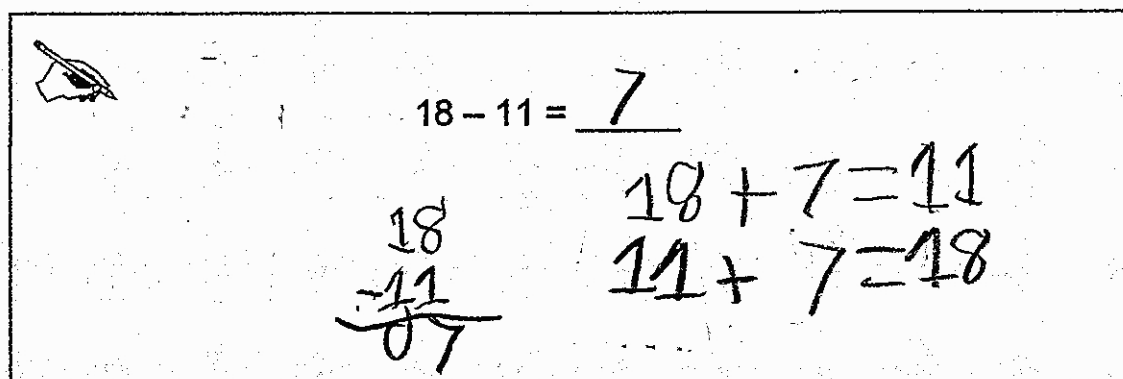 18 – 11 = 7
18 + 7 = 11
11 + 7 = 18
18
-11
07